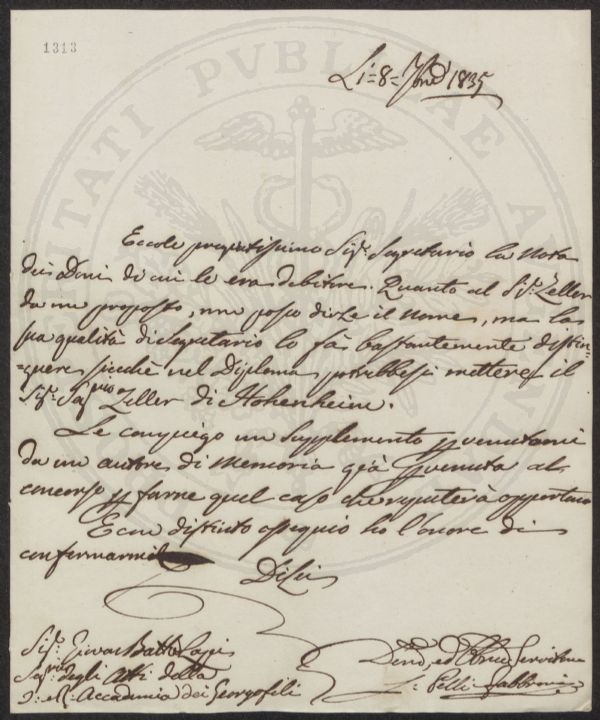 1313
Li = 8 = 1835
Eccole pregiatissimo Sigr. Segretario la nota
dei Doni di cui le era debitore. Quanto al Sigr. Zeller
da me proposto, non posso dirle il nome, ma la
sua qualità di Segretario lo fà bastantemente distin-
=guere sicchè nel Diploma potrebbesi mettere il
Sigr. Segrio Zeller di Hohenheim.
Le compiego un supplemento pervenutomi
da un autore di Memoria già pervenuta al
concorso per farne quel caso che reputerà opportuno
E con distinto ossequio ho l'onore di
confermarmi
Di Lei
Sigr. Giovan Batta
Segrio degli Atti della
I. e R. Accademia dei Georgofili
Devo. ed Obbmo Servitore
L. Pelli Fabbroni